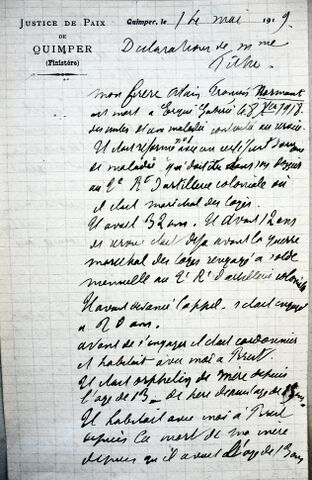 JUSTICE DE PAIX
DE
QUIMPER
(Finistère)
Quimper, le 14 mai 1919.
Déclaration de Mme
mon frère Alain François Normant
est mort à Ergué Gabéric le 8 Xbre 1918
des suites d'une maladie contractée au
Il était réformé no 1 avec certificat d'origine
de maladie qui doit être dans son dossier
au 2e Rt d'artillerie coloniale où
il était maréchal des logis.
Il avait 32 ans. Il avait 12 ans
de service était déjà avant la guerre
maréchal des logis rengagé à solde
mensuelle au 2e Rt d'artillerie coloniale
Il avait devancé l'appel, s'était engagé
à 20 ans.
avant de s'engager il était cordonnier
et habitait avec moi à Brest.
Il était orphelin de mère depuis
l'age de 13 de père depuis l'age de
Il habitait avec moi à Brest
depuis la mort de ma mère
depuis qu'il avait l'age de 13 ans